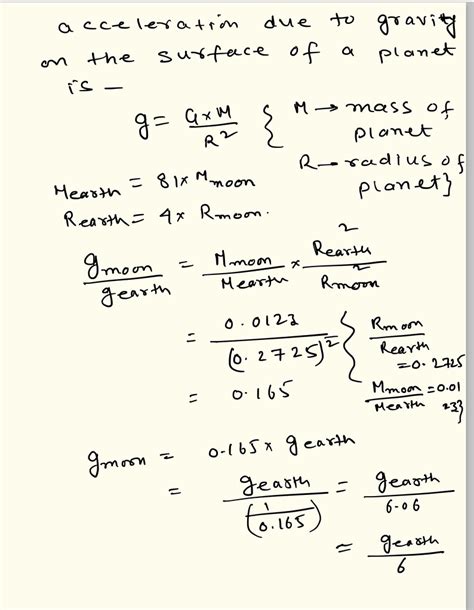 acceleration due to gravity
on the surface of a planet
is —
g = G×M / R² { M → mass of planet
R → radius of planet}
Mearth = 81× Mmoon
Rearth = 4× Rmoon.
gmoon / gearth = Mmoon / Mearth × Rearth² / Rmoon²
= 0.0123 / (0.2725)² { Rmoon / Rearth = 0.2725
= 0.165 Mmoon / Mearth = 0.01233}
gmoon = 0.165 × gearth
= gearth / (1 / 0.165) = gearth / 6.06
= gearth / 6